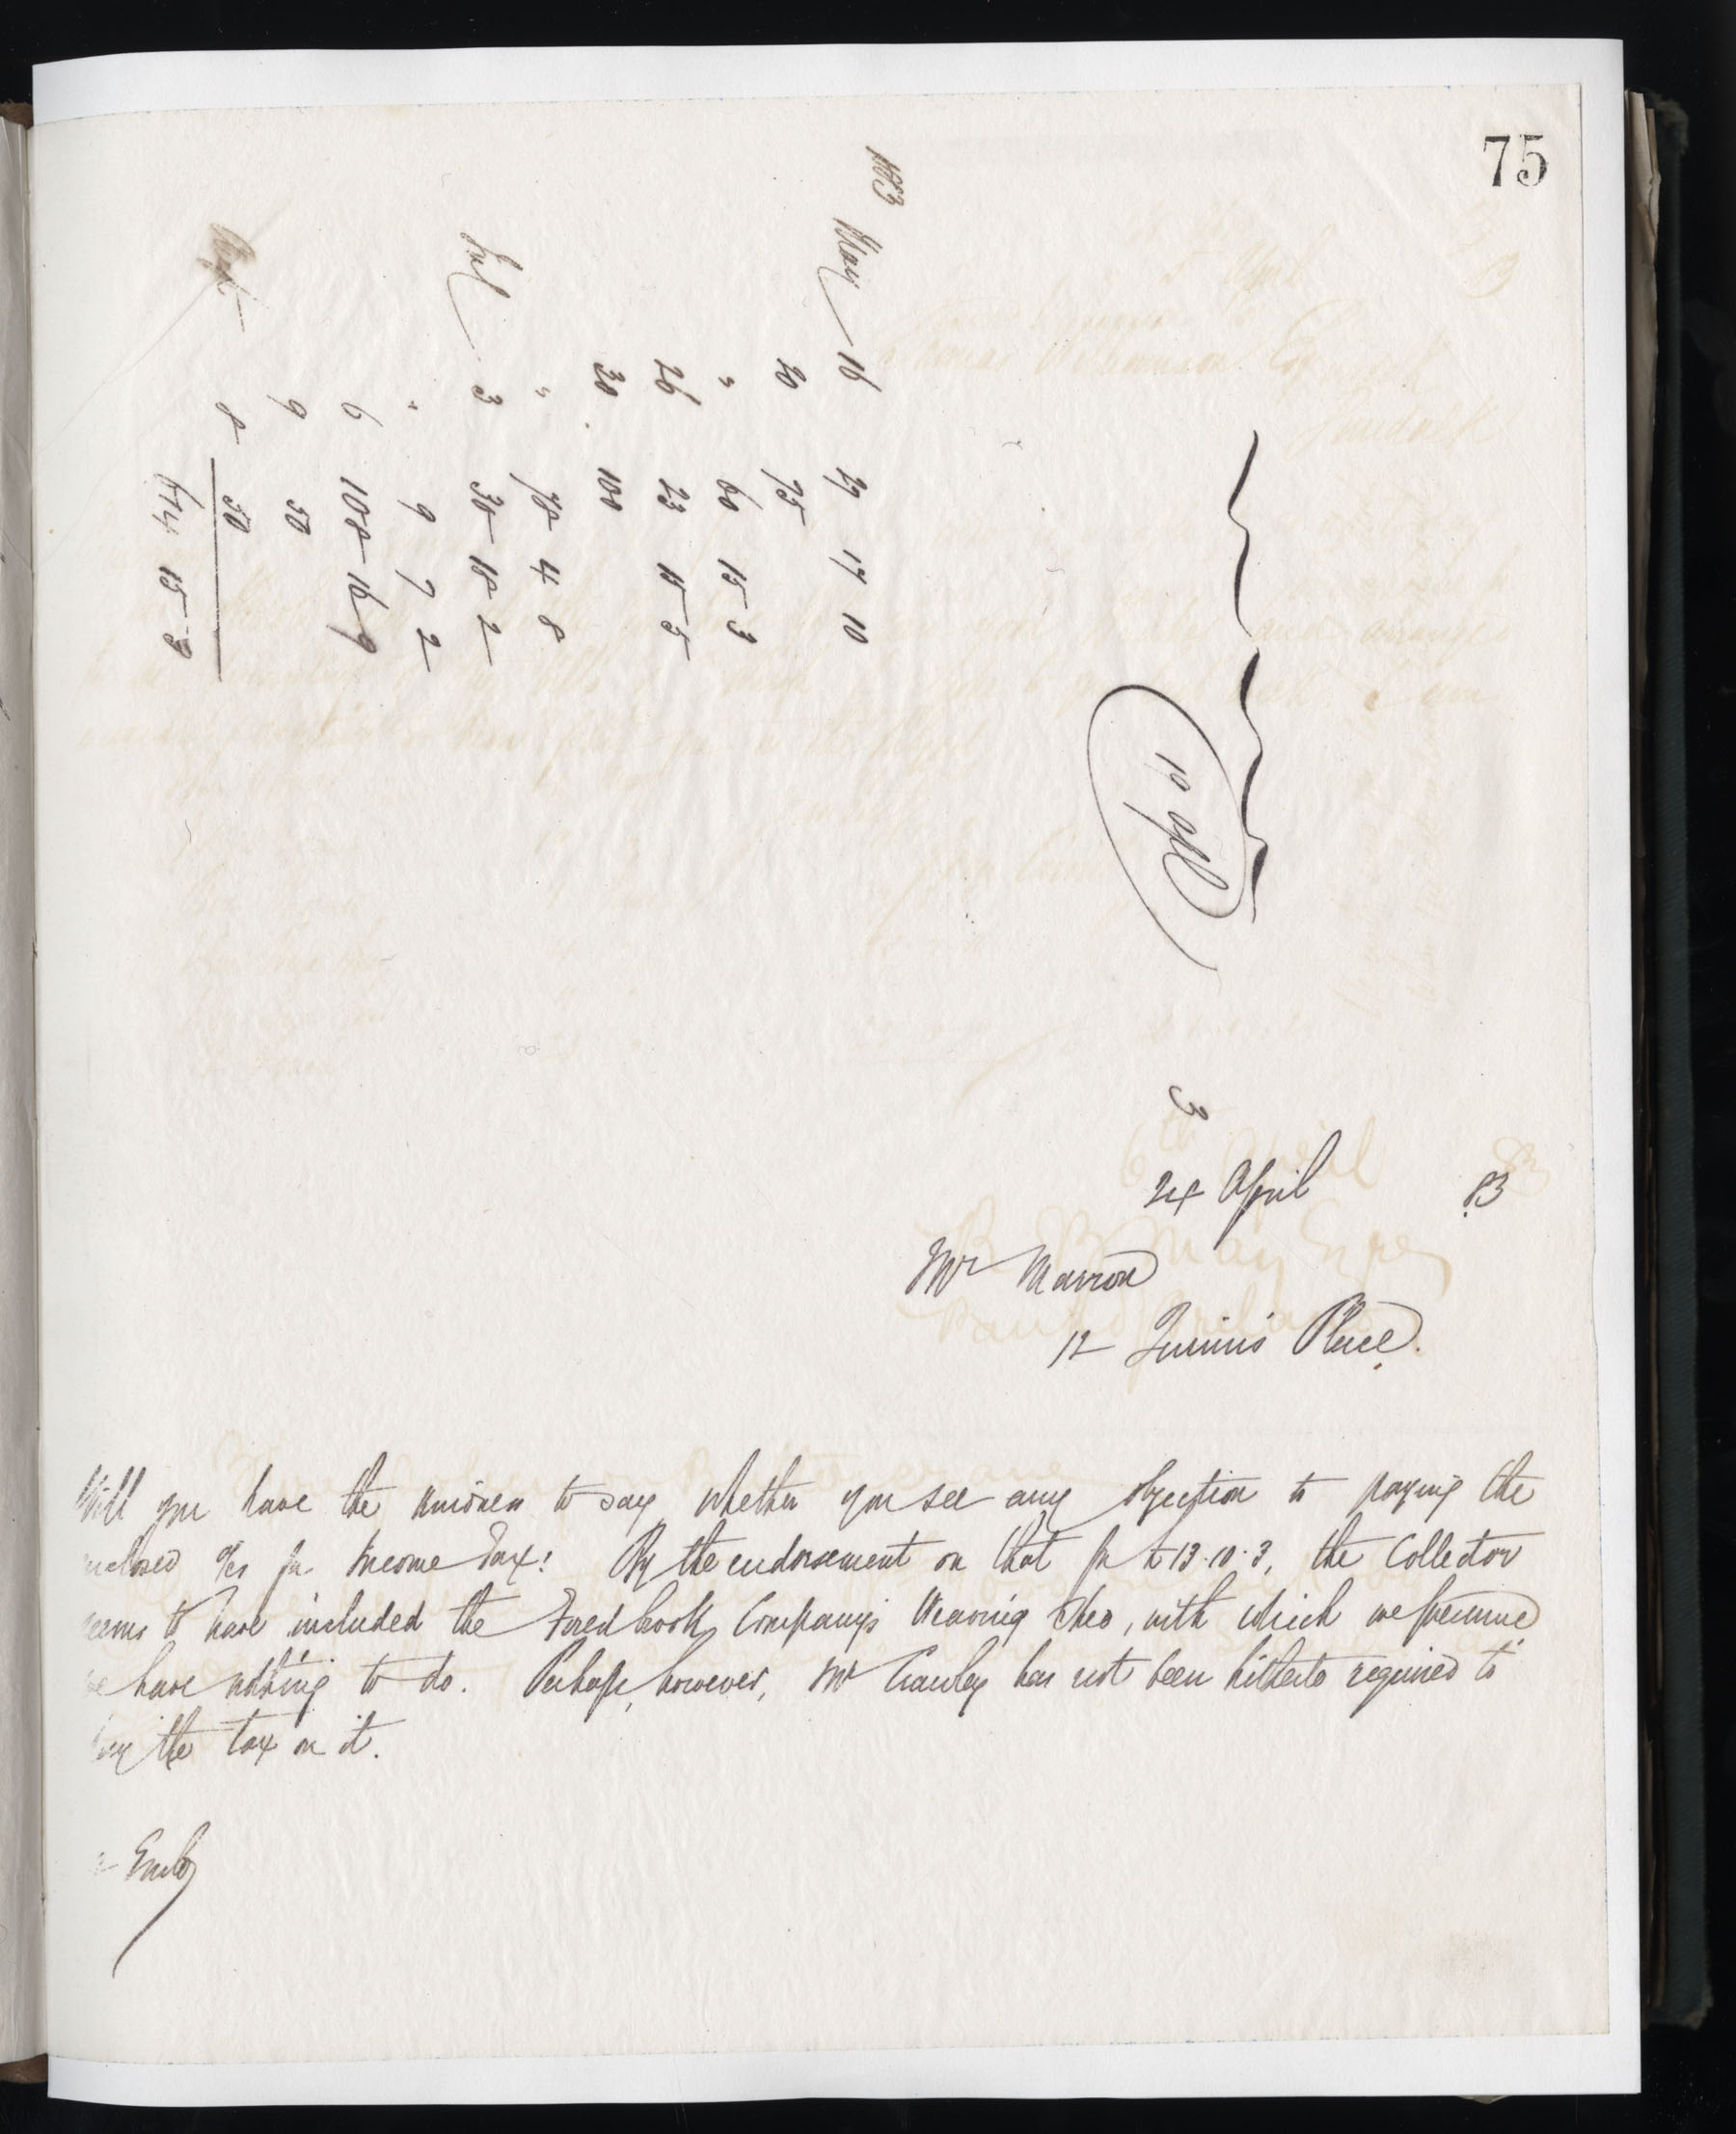 75
1883
May 16 29 17 10
20 75
" 60 15 3
26 23 15 5
30 100
" 78 4 8
Jul 3 38 18 2
" 9 7 2
6 108 16 9
9 50
8 50
15 3
19 Apl
3
24 April 83
Mr Marron
12 Place.
Will you have the kindness to say whether you see any objection to paying the
enclosed for Income Tax? By the endorsement on that for £13.10.3, the Collector
seems to have included the Company's Weaving , with which we presume
we have nothing to do. Perhaps, however, Mr Cranley has not been hitherto required to
pay the tax on it.
2 Enclo